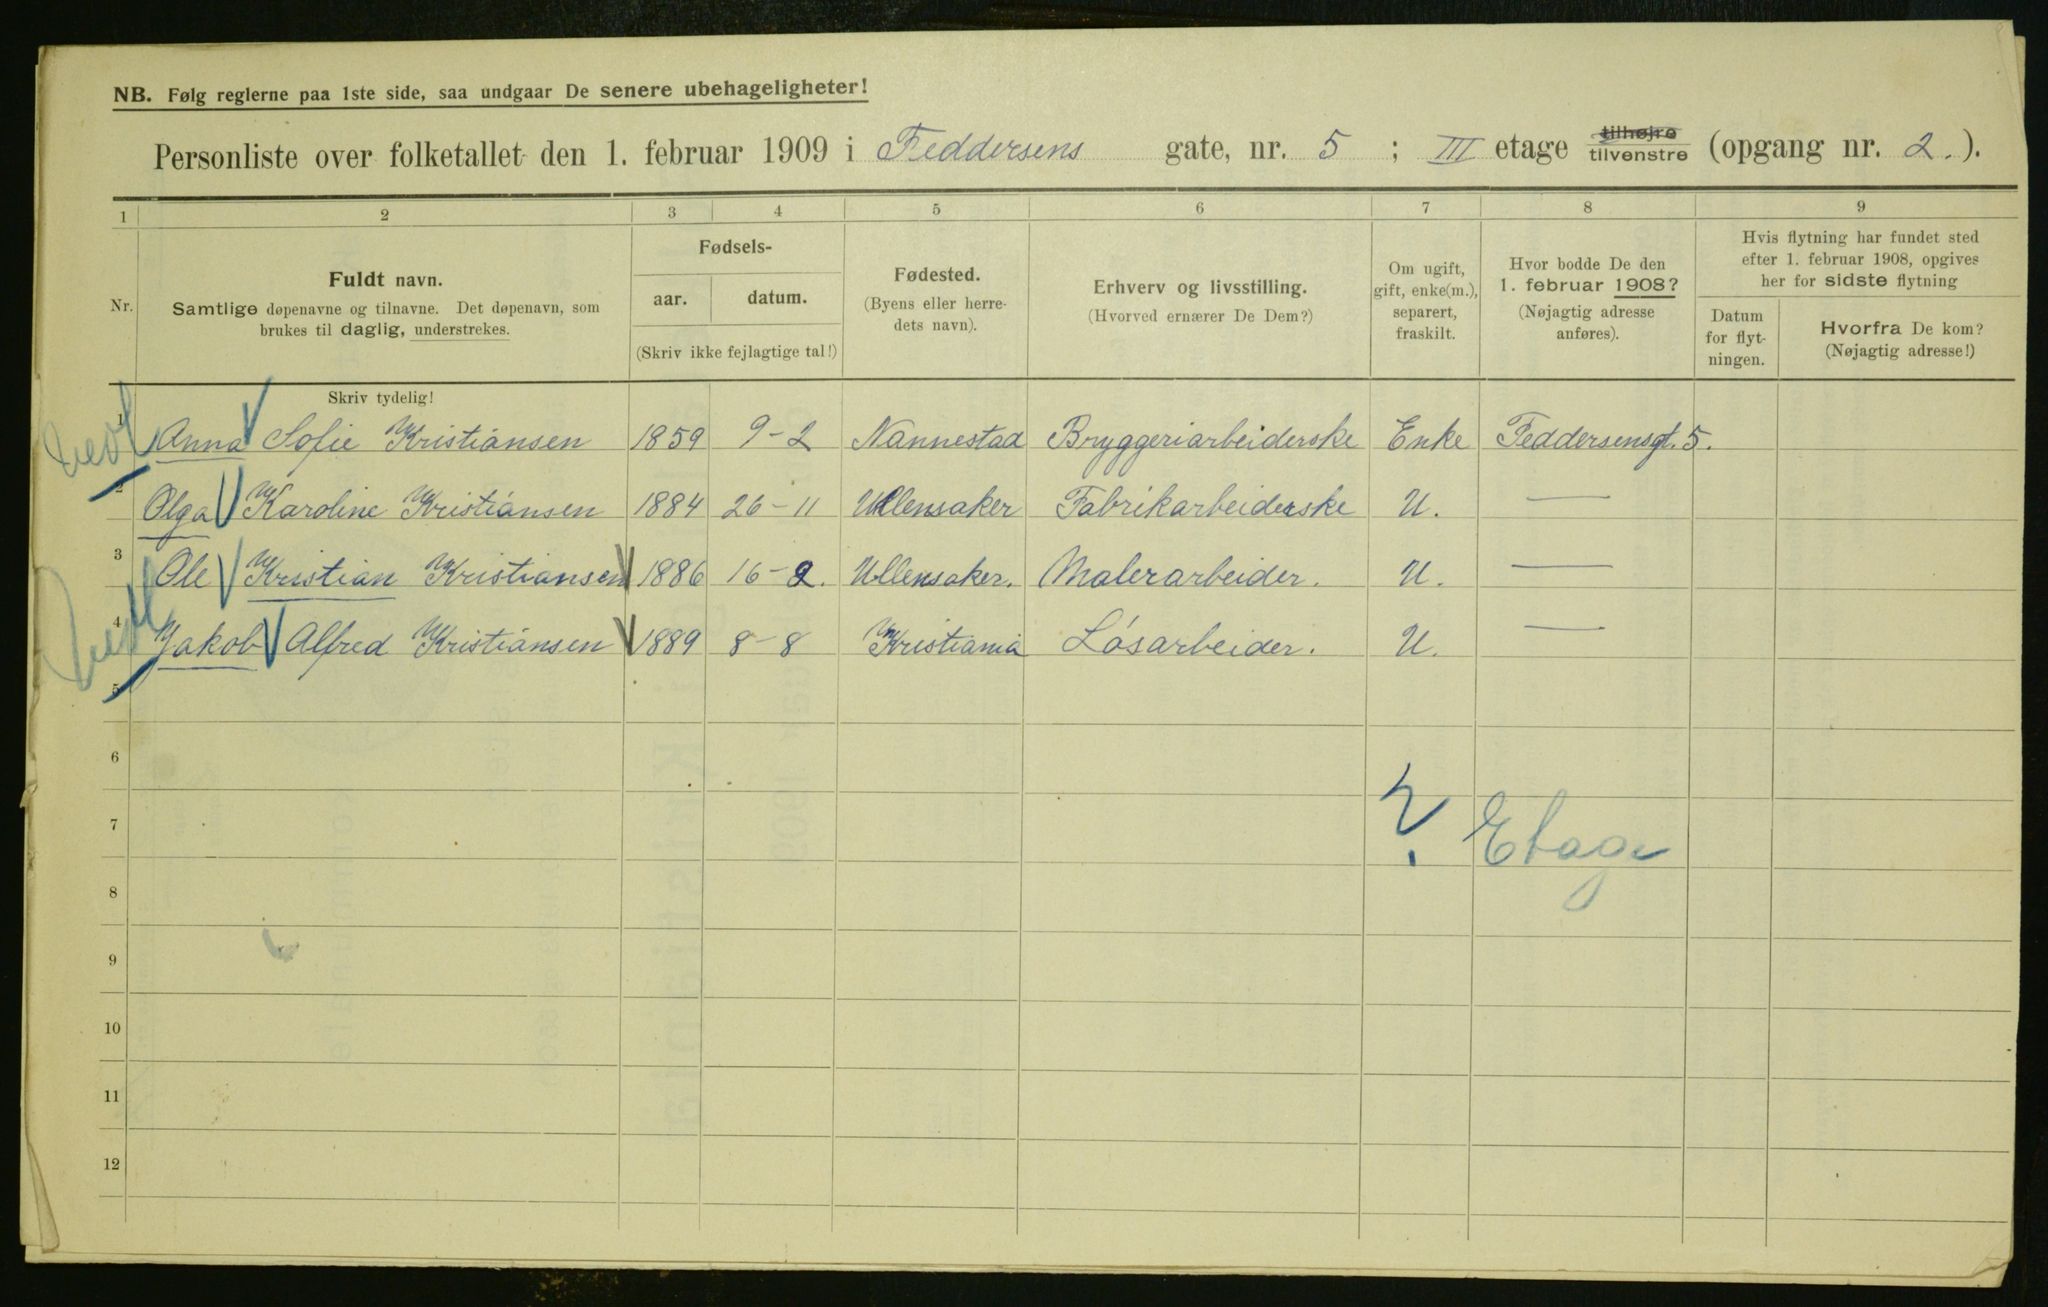 NB. Følg reglerne paa 1ste side, saa undgaar De senere ubehageligheter!
Personliste over folketallet den 1. februar 1909 i Feddersens gate, nr. 5 ; III etage tilhøjre tilvenstre (opgang nr. 2.).
1 2 3 4 5 6 7 8 9
Nr.
Fuldt navn.
Samtlige døpenavne og tilnavne. Det døpenavn, som
brukes til daglig, understrekes.
Skriv tydelig!
Fødsels-
aar. datum.
(Skriv ikke fejlagtige tal!)
Fødested.
(Byens eller herre-
dets navn).
Erhverv og livsstilling.
(Hvorved ernærer De Dem?)
Om ugift,
gift, enke(m.),
separert,
fraskilt.
Hvor bodde De den
1. februar 1908?
(Nøjagtig adresse
anføres).
Hvis flytning har fundet sted
efter 1. februar 1908, opgives
her for sidste flytning
Datum
for flyt-
ningen.
Hvorfra De kom?
(Nøjagtig adresse!)
1 Anna Sofie Kristiansen 1859 9-2 Nannestad Bryggeriarbeiderske Enke Feddersensgt. 5.
2 Olga Karoline Kristiansen 1884 26-11 Ullensaker Fabrikarbeiderske U. —
3 Ole Kristian Kristiansen 1886 16-2. Ullensaker. Malerarbeider. U. —
4 Jakob Alfred Kristiansen 1889 8-8 Kristiania Løsarbeider. U. —
5
6
7
? Etage
8
9
10
11
12